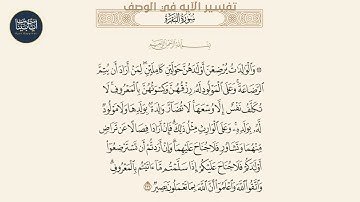 تفسير الآيه في الوصف
سُورَةُ البَقَرَةِ
بِسْمِ اللَّهِ الرَّحْمَٰنِ الرَّحِيمِ
۞ وَالْوَالِدَاتُ يُرْضِعْنَ أَوْلَادَهُنَّ حَوْلَيْنِ كَامِلَيْنِ لِمَنْ أَرَادَ أَن يُتِمَّ
الرَّضَاعَةَ وَعَلَى الْمَوْلُودِ لَهُ رِزْقُهُنَّ وَكِسْوَتُهُنَّ بِالْمَعْرُوفِ لَا
تُكَلَّفُ نَفْسٌ إِلَّا وُسْعَهَا لَا تُضَارَّ وَالِدَةٌ بِوَلَدِهَا وَلَا مَوْلُودٌ
لَّهُ بِوَلَدِهِ وَعَلَى الْوَارِثِ مِثْلُ ذَٰلِكَ فَإِنْ أَرَادَا فِصَالًا عَن تَرَاضٍ
مِّنْهُمَا وَتَشَاوُرٍ فَلَا جُنَاحَ عَلَيْهِمَا وَإِنْ أَرَدتُّمْ أَن تَسْتَرْضِعُوا
أَوْلَادَكُمْ فَلَا جُنَاحَ عَلَيْكُمْ إِذَا سَلَّمْتُم مَّا آتَيْتُم بِالْمَعْرُوفِ
وَاتَّقُوا اللَّهَ وَاعْلَمُوا أَنَّ اللَّهَ بِمَا تَعْمَلُونَ بَصِيرٌ